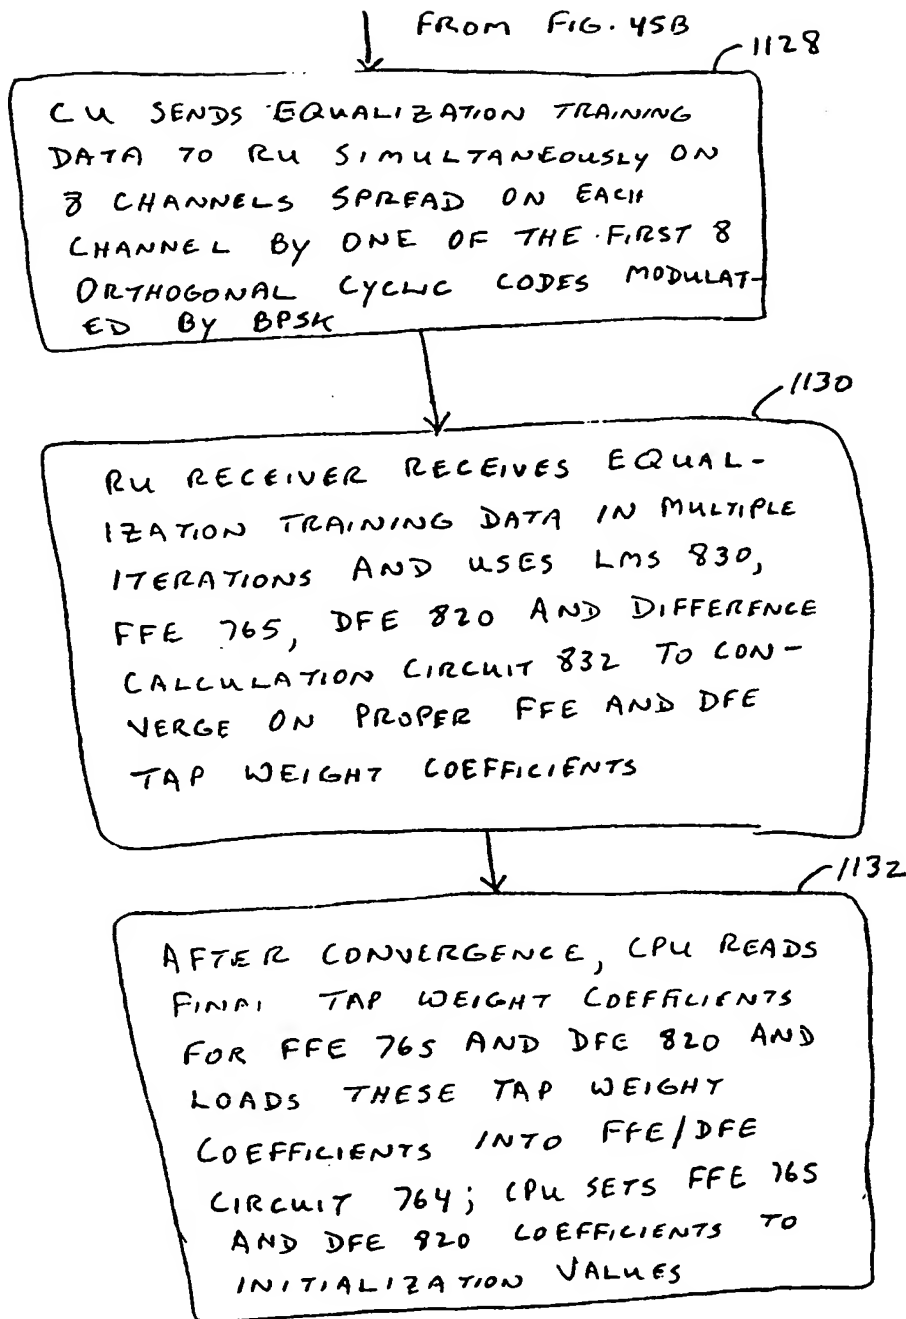 FROM FIG. 45B
1128
CU SENDS EQUALIZATION TRAINING
DATA TO RU SIMULTANEOUSLY ON
8 CHANNELS SPREAD ON EACH
CHANNEL BY ONE OF THE FIRST 8
ORTHOGONAL CYCLIC CODES MODULAT-
ED BY BPSK
1130
RU RECEIVER RECEIVES EQUAL-
IZATION TRAINING DATA IN MULTIPLE
ITERATIONS AND USES LMS 830,
FFE 765, DFE 820 AND DIFFERENCE
CALCULATION CIRCUIT 832 TO CON-
VERGE ON PROPER FFE AND DFE
TAP WEIGHT COEFFICIENTS
1132
AFTER CONVERGENCE, CPU READS
FINAL TAP WEIGHT COEFFICIENTS
FOR FFE 765 AND DFE 820 AND
LOADS THESE TAP WEIGHT
COEFFICIENTS INTO FFE/DFE
CIRCUIT 764; CPU SETS FFE 765
AND DFE 820 COEFFICIENTS TO
INITIALIZATION VALUES